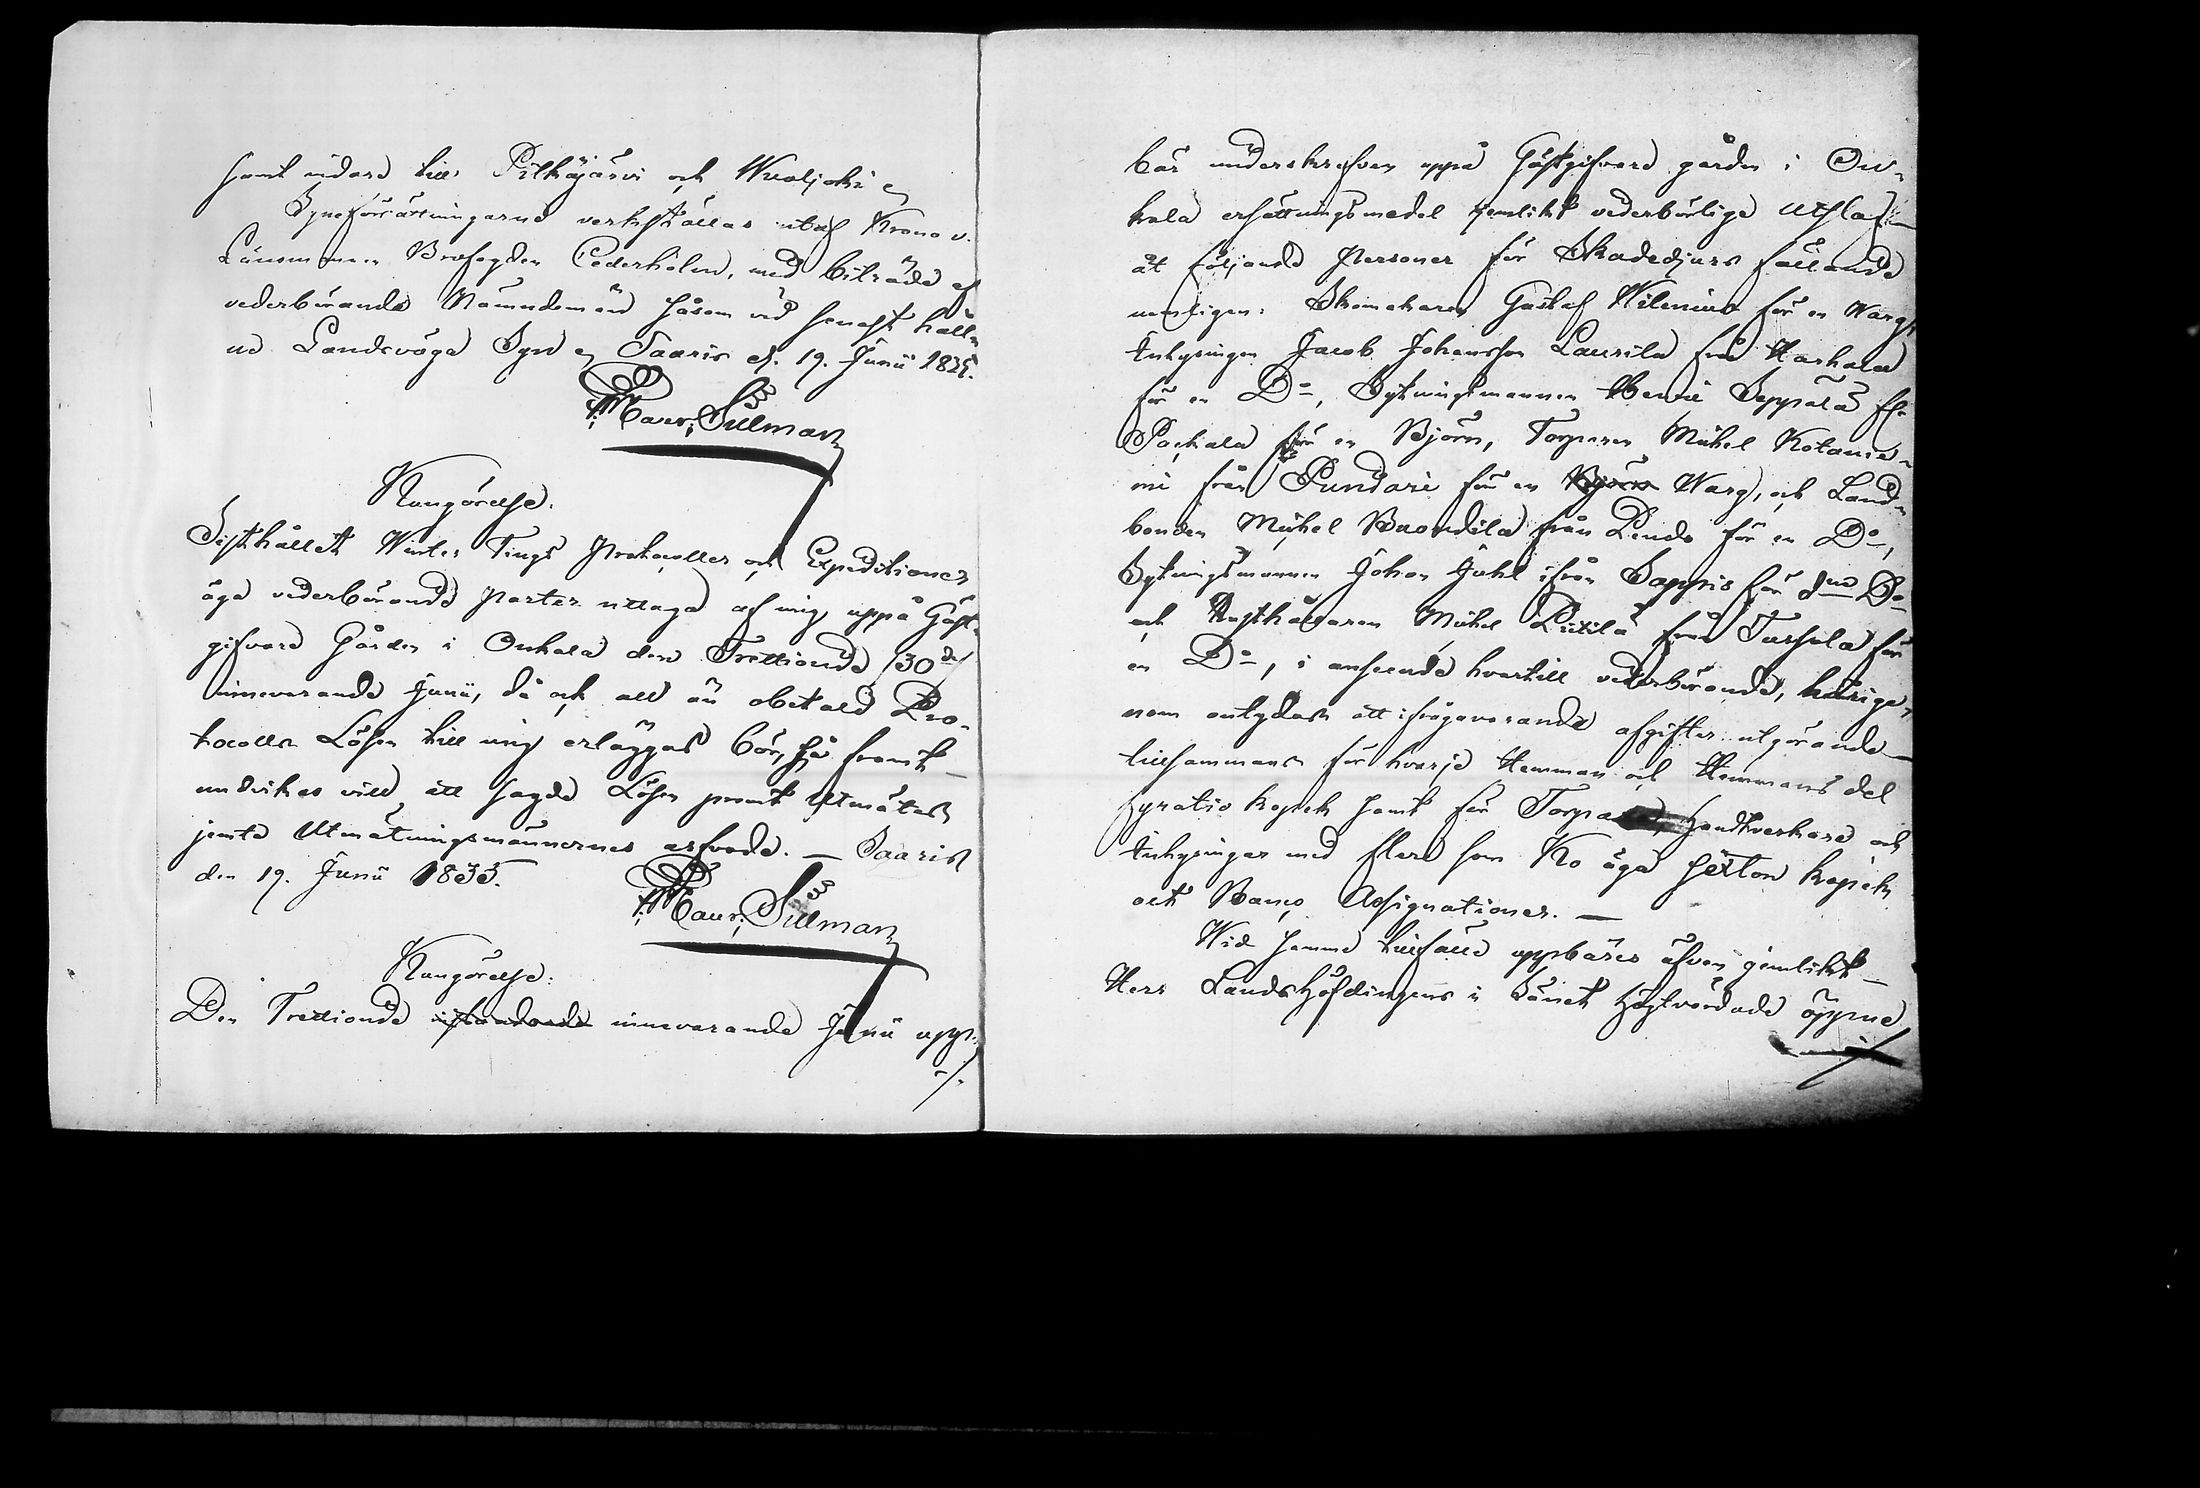 samt vidare till Pitkäjärvi och Wuoljoki
Syneförrättningarne verkställas utaf Krono
Länsmannen Brofogden Cederholm, med biträde af
vederbörande Nämndemän såsom vid senast hålln
ne Landsvägs Syn Saaris d. 19. Junii 1835.
Maur: Sillman
Kungörelse.
Sisthållett Winter Tings Protocoller och Expeditioner
äga vederbörande parter uttaga af mig, uppå Gäst-
gifvare Gården i Onkala den Trettionde /30de/
innevarande Junii, då och all än obetald Pro-
tocolls Lösen till mig erläggas bör, så framt
undvikas vill att sagde Lösen promt utmätas
jemte Utmätningsmännernes arfvode. — Saaris
den 19. Junii 1835.
Maur: Sillman
Kungörelse.
Den Trettionde innevarande Junii upp-
./.
bär underskrefven uppå Gästgifvare gården i On-
kala ersättningsmedel jemlikt vederbörlige Utslag
åt följande personer för Skadedjurs fällande
nemligen: Skomakaren Gustaf Wilenius för en Warg,
Inhysingen Jacob Johansson Laurila från Karhala
för en Do, Sytningsmannen Henric Seppälä fr.
Packala för en Björn, Torparen Mickel Kotanie-
mi från Pundari för en Björn Warg, och Land-
bonden Mickel Buondila från Pendo för en Do,
Sytningsmannen Johan Juhl ifrån Sappris för 2ne Do
och Rusthållaren Mickel Prittilä från Tursola för
en Do, i anseende hvartill vederbörande, härige-
nom antydas att ifrågavarande afgifter utgörande
tillsammans för hvarje Hemman och Hemmans del
fyratio kopek samt för Torpare, Handtverkare och
Inhysingar med flere som Ko äga sexton kopek
allt Banco Assignationer. —
Wid samma tillfälle uppbäres äfven jemlikt
Herr Landshöfdingens i Länet högtvördade öppne
./.